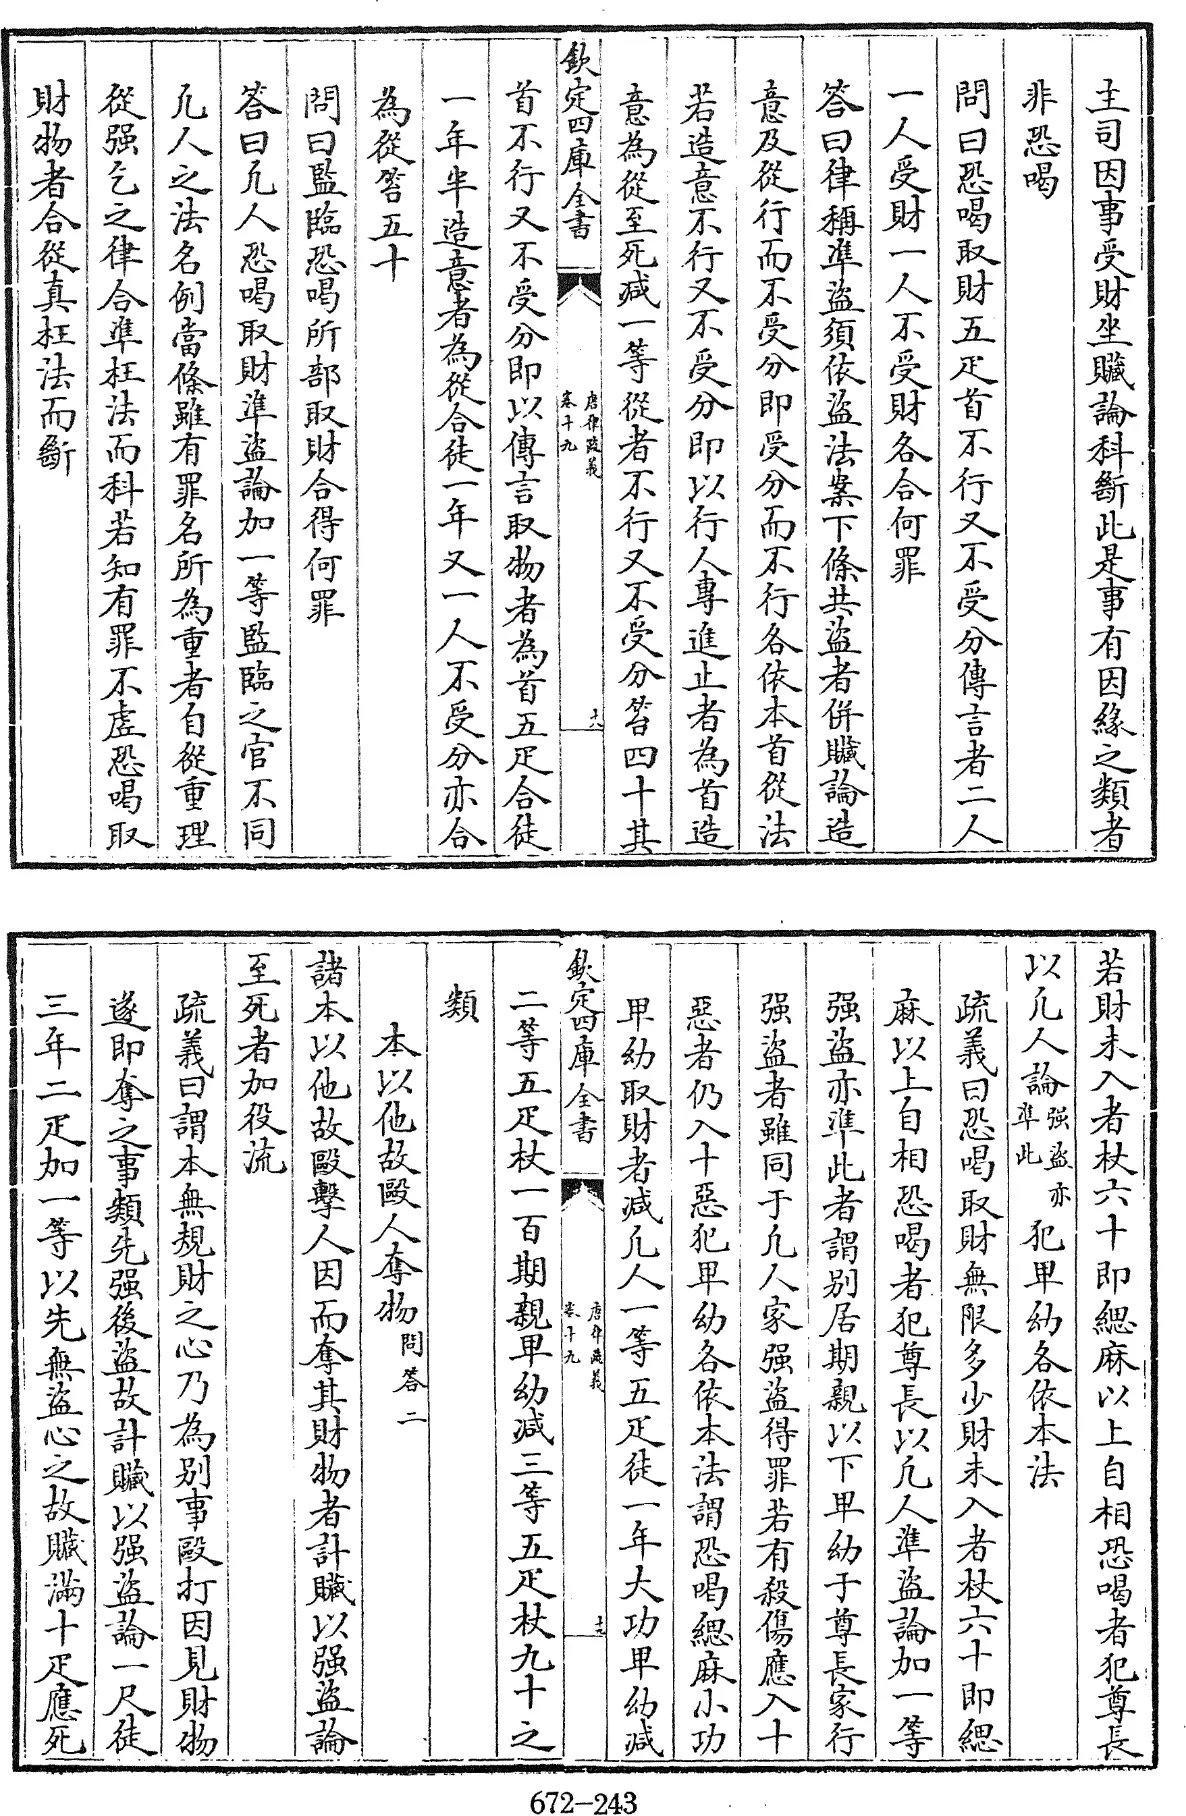 主司因事受財坐贓論科斷此是事有因緣之類者
非恐喝
問曰恐喝取財五疋首不行又不受分傳言者二人
一人受財一人不受財各合何罪
答曰律稱準盜須依盜法案下條共盜者併贓論造
意及從行而不受分即受分而不行各依本首從法
若造意不行又不受分即以行人專進止者為首造
意為從至死減一等從者不行又不受分笞四十其
欽定四庫全書
唐律疏義
卷十九
十六
首不行又不受分即以傳言取物者為首五疋合徒
一年半造意者為從合徒一年又一人不受分亦合
為從笞五十
問曰監臨恐喝所部取財合得何罪
答曰凡人恐喝取財準盜論加一等監臨之官不同
凡人之法名例當條雖有罪名所為重者自從重理
從强乞之律合準枉法而科若知有罪不虛恐喝取
財物者合從真枉法而斷
若財未入者杖六十即緦麻以上自相恐喝者犯尊長
以凡人論强盜亦準此犯卑幼各依本法
疏義曰恐喝取財無限多少財未入者杖六十即緦
麻以上自相恐喝者犯尊長以凡人準盜論加一等
强盜亦準此者謂别居期親以下卑幼于尊長家行
强盜者雖同于凡人家强盜得罪若有殺傷應入十
惡者仍入十惡犯卑幼各依本法謂恐喝緦麻小功
卑幼取財者減凡人一等五疋徒一年大功卑幼減
欽定四庫全書
唐律疏義
卷十九
十七
二等五疋杖一百期親卑幼減三等五疋杖九十之
類
本以他故毆人奪物問答二
諸本以他故毆擊人因而奪其財物者計贓以强盜論
至死者加役流
疏義曰謂本無規財之心乃為别事毆打因見財物
遂即奪之事類先强後盜故計贓以强盜論一尺徒
三年二疋加一等以先無盜心之故贓滿十疋應死
672-243